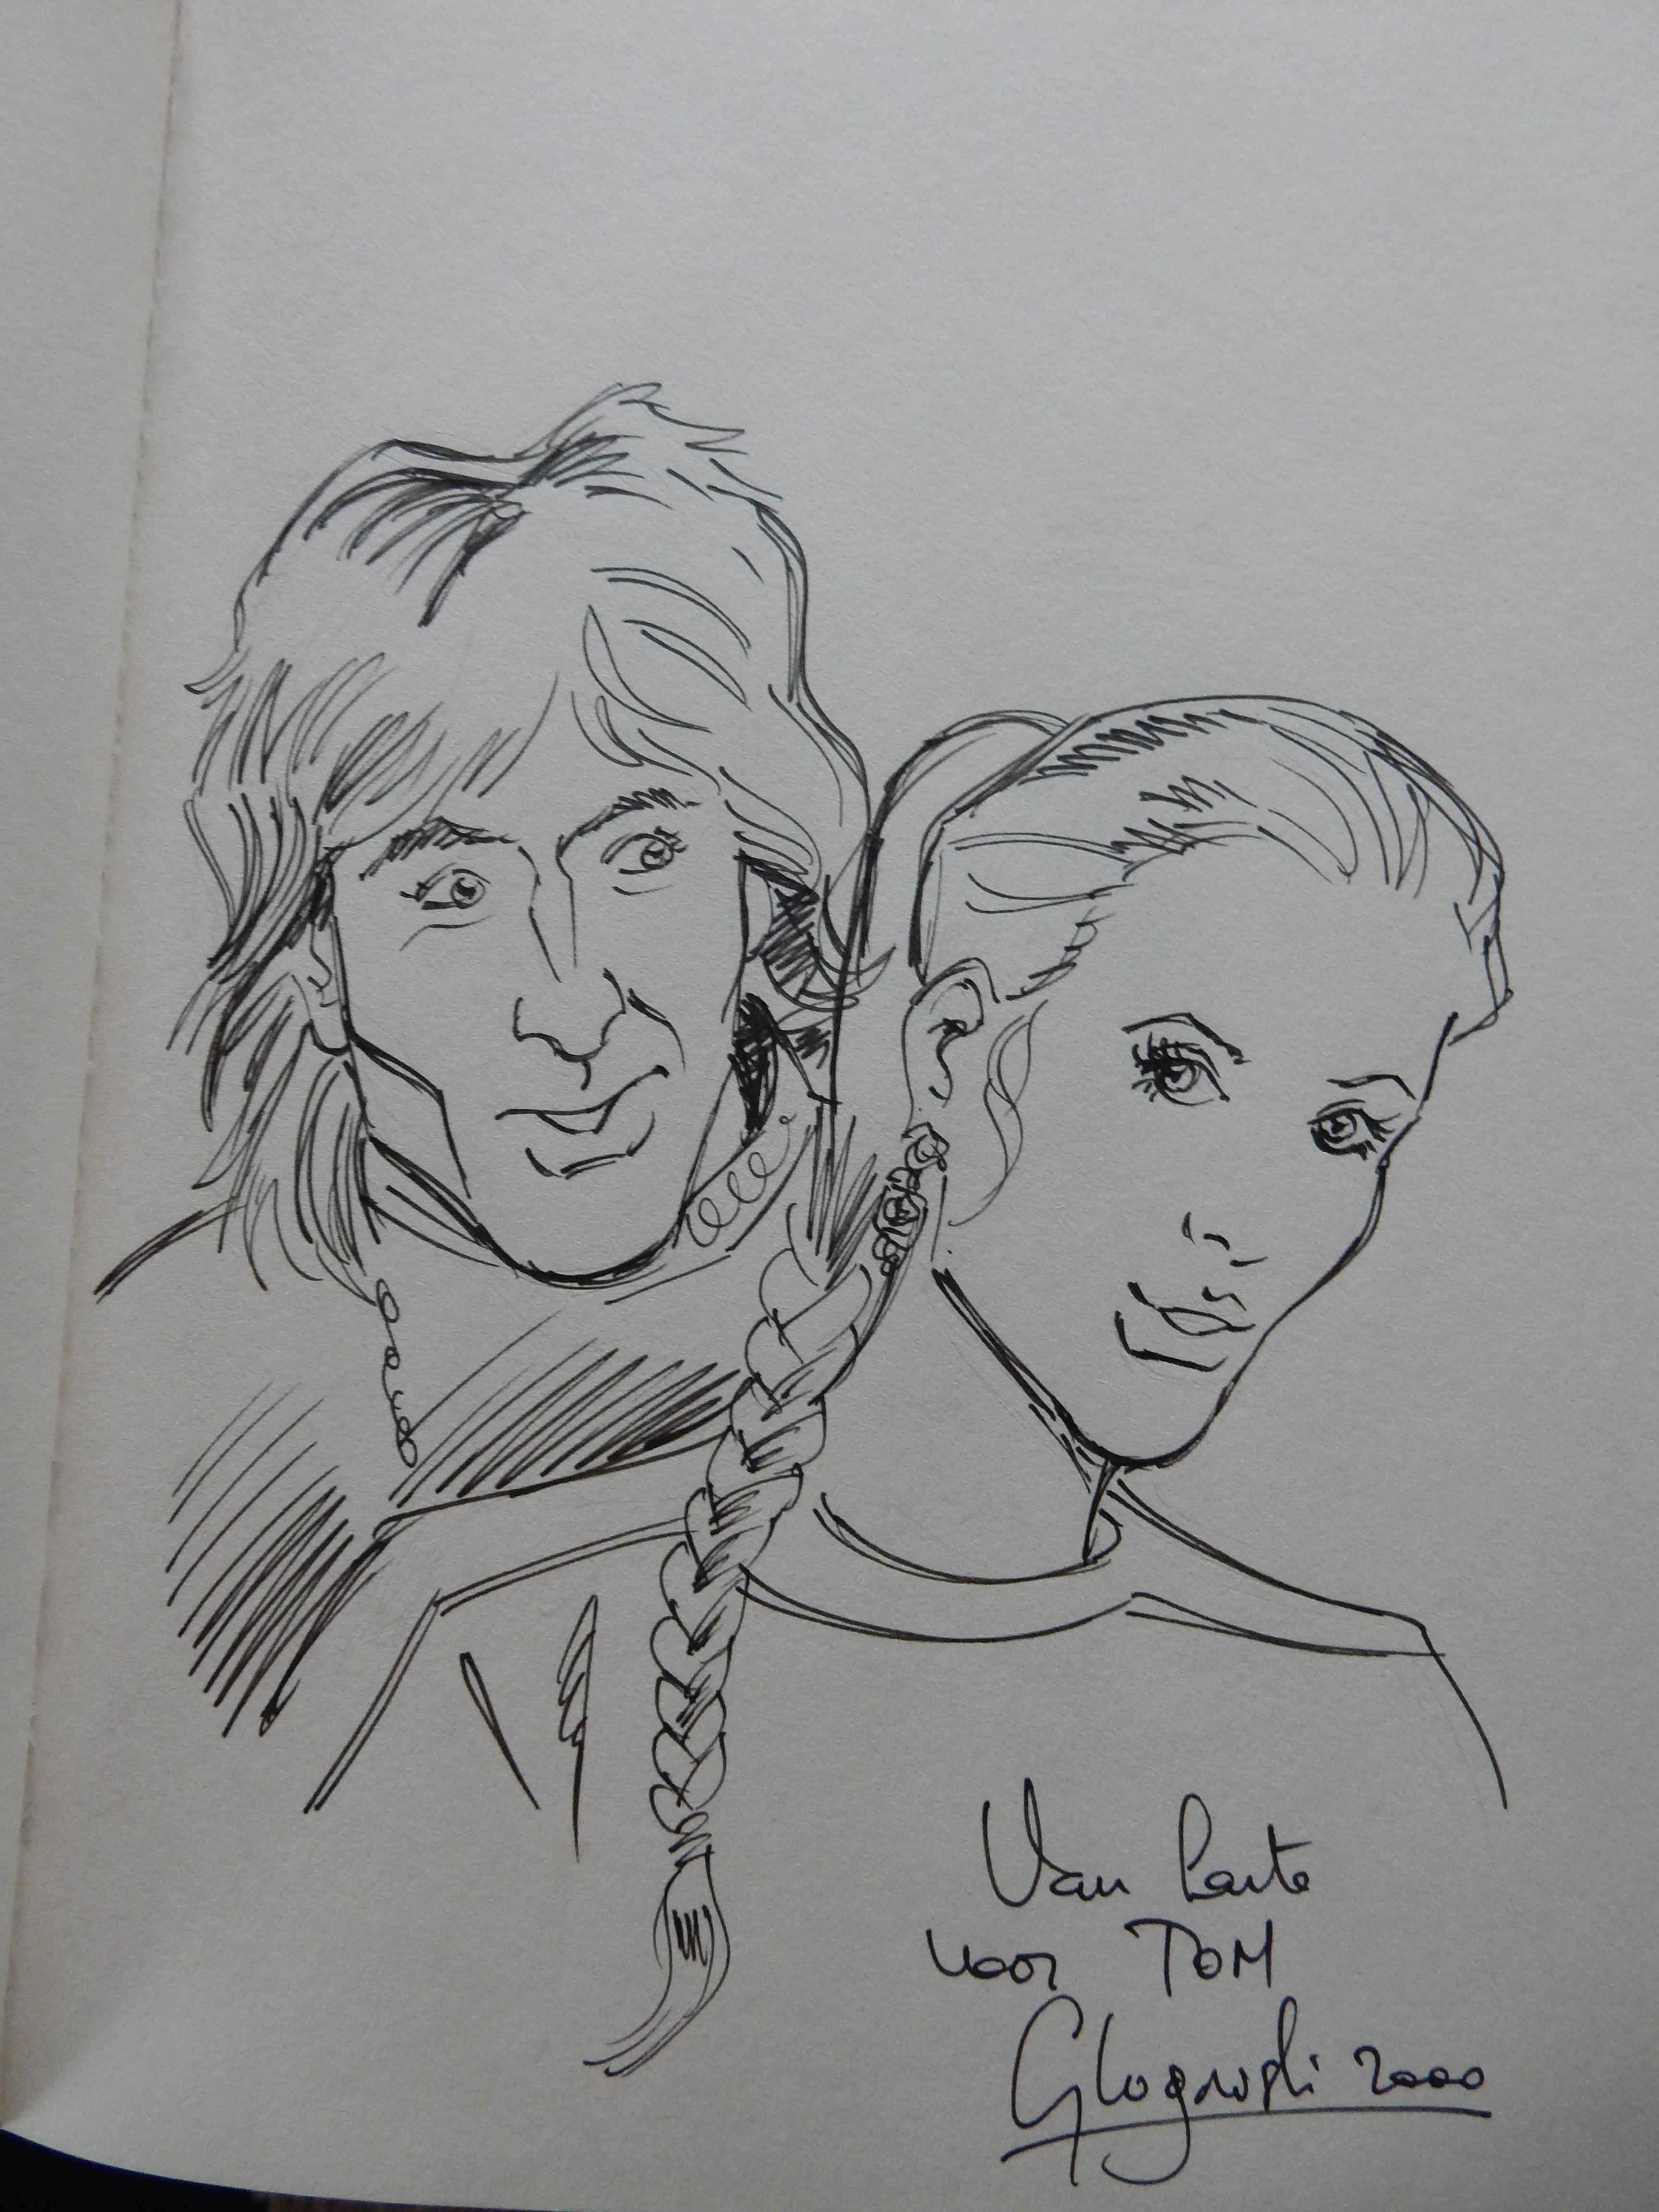 Van Harte
voor TOM
Glogowski 2000